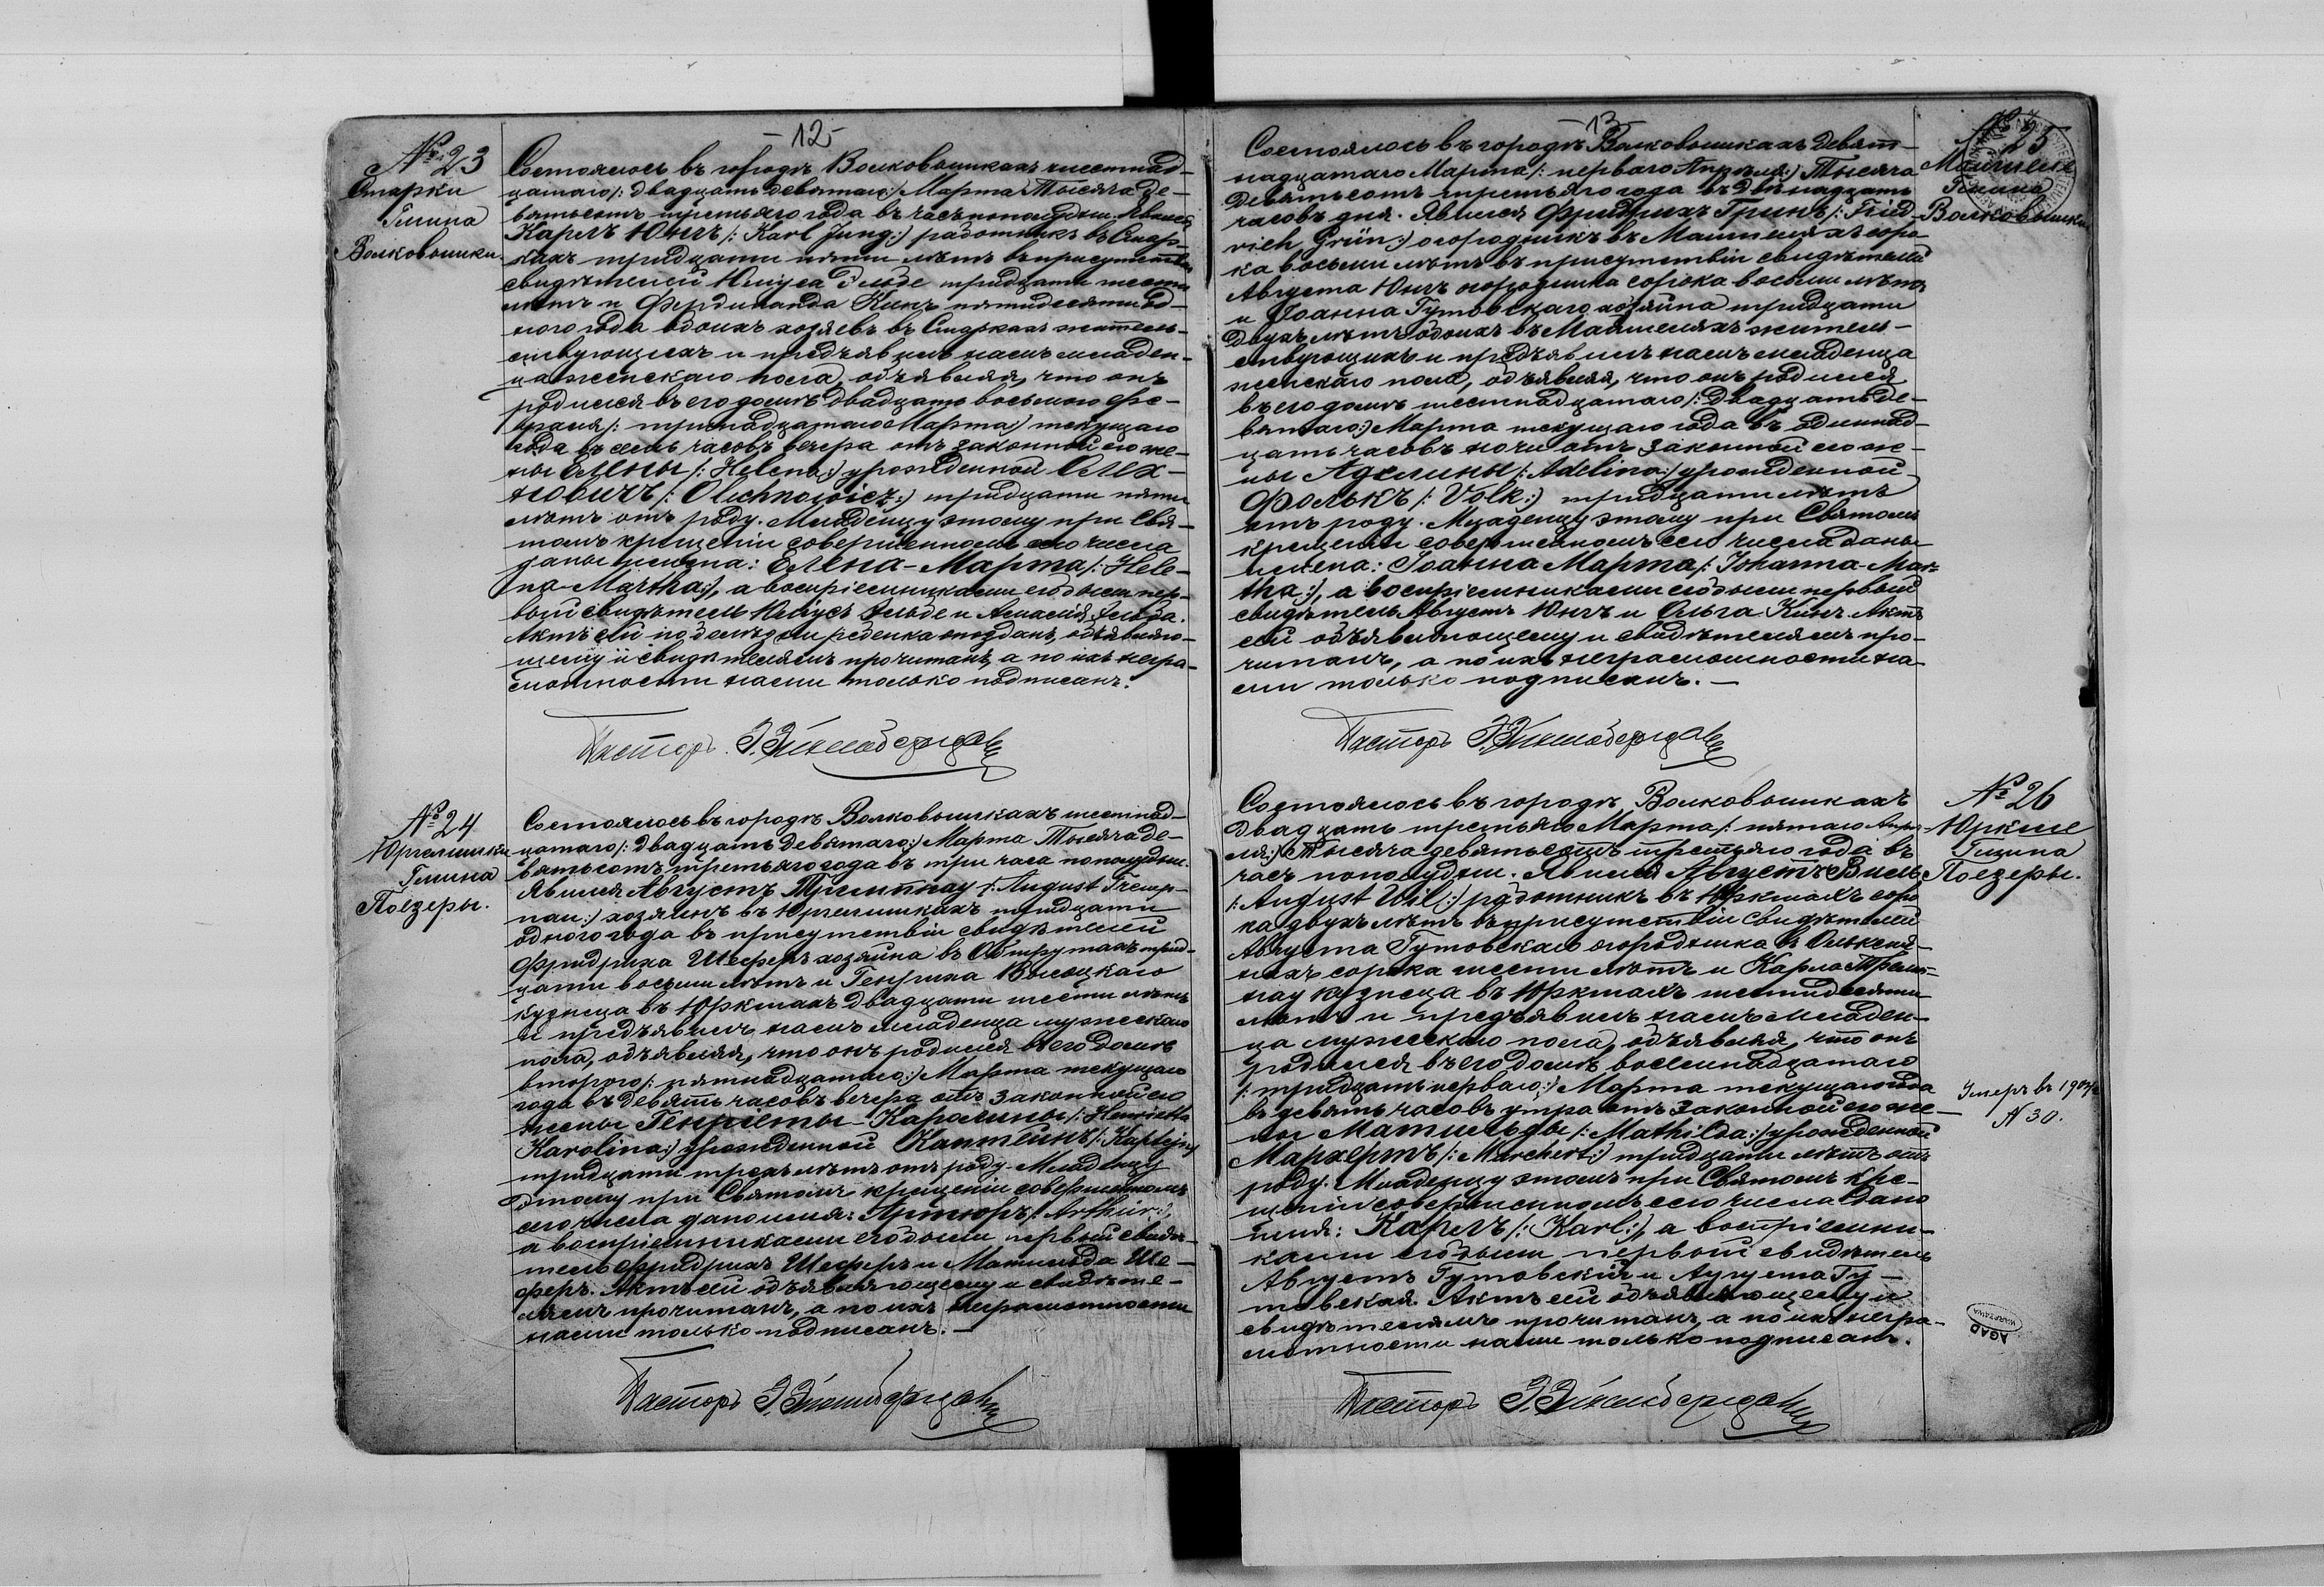 -12-
№ 23
Старки
Гмина
Волковышки.
Состоялось въ городѣ Волковышкахъ шестнад-
цатаго /: двадцать девятаго :/ Марта Тысяча де-
вятьсотъ третьяго года въ часъ пополудни. Явился
Карлъ Юнгъ /: Karl Jung :/ работникъ въ Стар-
кахъ тридцати пяти лѣтъ въ присутствіи
свидѣтелей Юліуса Эльде тридцати шести
лѣтъ и Фердинанда Кинъ пятидесяти од-
ного года обоихъ хозяевъ въ жительс-
твующихъ и предъявилъ намъ младен-
ца женскаго пола, объявляя, что онъ
родился въ его домѣ двадцать восьмого Фе-
враля /: тринадцатаго Марта :/ текущаго
года въ семь часовъ вечера отъ законной его же-
ны Елены /: Helena :/ урожденной Олех-
новичъ /: Olechnowicz :/ тридцати пяти
лѣтъ отъ роду. Младенцу этому при Свя-
томъ крещеніи совершенномъ сего числа
даны имена: Елена-Марта /: Hele-
na-Martha :/, а воспріемниками его были пер-
вый свидѣтель Юліусъ Эльде и Эльде.
Актъ сей ребенка объявляю-
щему и свидѣтелямъ прочитанъ, а по ихъ негра-
мотности нами только подписанъ.
Пасторъ
№ 24
Юргелишки
Гмина
Поезеры.
Состоялось въ городѣ Волковышкахъ шестнад-
цатаго /: двадцать девятаго :/ Марта Тысяча де-
вятьсотъ третьяго года въ три часа пополудни.
Явился Августъ Тремпнау /: August Tremp-
nau :/ хозяинъ въ Юргелишкахъ тридцати
одного года въ присутствіи свидѣтелей
Фридриха Шеферъ хозяина въ Обшрутахъ трид-
цати восьми лѣтъ и Генриха Высоцкаго
кузнеца въ Юркшахъ двадцати шести лѣтъ
и предъявилъ намъ младенца мужескаго
пола, объявляя, что онъ родился въ его домѣ
второго /: пятнадцатаго :/ Марта текущаго
года въ девять часовъ вечера отъ законной его
жены Генріеты-Каролины /: Henrietta
Karolina :/ урожденной Каптейнъ /: Kaptejn :/
тридцати трехъ лѣтъ отъ роду. Младенцу
этому при Святомъ крещеніи совершенномъ
сего числа дано имя: Артюръ /: Arthur :/,
а воспріемниками его были первый свидѣ-
тель Фридрихъ Шеферъ и Матильда Ше-
феръ. Актъ сей объявляющему и свидѣте-
лямъ прочитанъ, а по ихъ неграмотности
нами только подписанъ.—
Пасторъ
-13-
№ 25
Гмина
Волковышки
Состоялось въ городѣ Волковышкахъ девят-
надцатаго Марта /: перваго Апрѣля :/ Тысяча
девятьсотъ третьяго года въ двѣнадцать
часовъ дня. Явился Фридрихъ Гринъ /: Frid-
rich Grün :/ огородникъ въ соро-
ка восьми лѣтъ въ присутствіи свидѣтелей
Августа Юнгъ огородника сорока восьми лѣтъ
и Іоанна Гутовскаго хозяина тридцати
двухъ лѣтъ обоихъ въ жительс-
твующихъ и предъявилъ намъ младенца
женскаго пола, объявляя, что онъ родился
въ его домѣ шестнадцатаго /: двадцать де-
вятаго :/ Марта текущаго года въ одиннад-
цать часовъ ночи отъ законной его же-
ны Аделины /: Adelina :/ урожденной
Фолькъ /: Volk :/ тридцати лѣтъ
отъ роду. Младенцу этому при Святомъ
крещеніи совершенномъ сего числа даны
имена: Іоанна Марта /: Johanna-Mar-
tha :/, а воспріемниками его были первый
свидѣтель Августъ Юнгъ и Ольга Кинъ. Актъ
сей объявляющему и свидѣтелямъ про-
читанъ, а по ихъ неграмотности на-
ми только подписанъ.—
Пасторъ
№ 26
Юркше
Гмина
Поезеры.
Состоялось въ городѣ Волковышкахъ
двадцать третьяго Марта /: пятаго Апрѣ-
ля :/ Тысяча девятьсотъ третьяго года въ
часъ пополудни. Явился Августъ Виль
/: August Wil :/ работникъ въ Юркшахъ соро-
ка двухъ лѣтъ въ присутствіи свидѣтелей
Августа Гутовскаго огородника въ
сорока шести лѣтъ и Карла Тремп-
нау кузнеца въ Юркшахъ шестидесяти
лѣтъ и предъявилъ намъ младен-
ца мужескаго пола, объявляя, что онъ
родился въ его домѣ восемнадцатаго
/: тридцать перваго :/ Марта текущаго года
въ девять часовъ утра отъ законной его же-
ны Матильды /: Mathilda :/ урожденной
Мархертъ /: Marchert :/ тридцати лѣтъ отъ
роду. Младенцу этому при Святомъ кре-
щеніи совершенномъ сего числа дано
имя: Карлъ /: Karl :/, а воспріемни-
ками его были первый свидѣтель
Августъ Гутовскій и Аугуста Гу-
товская. Актъ сей объявляющему и
свидѣтелямъ прочитанъ, а по ихъ негра-
мотности нами только подписанъ.
Умеръ въ 1904 г.
N 30.
Пасторъ
AGAD
WARSZAWA